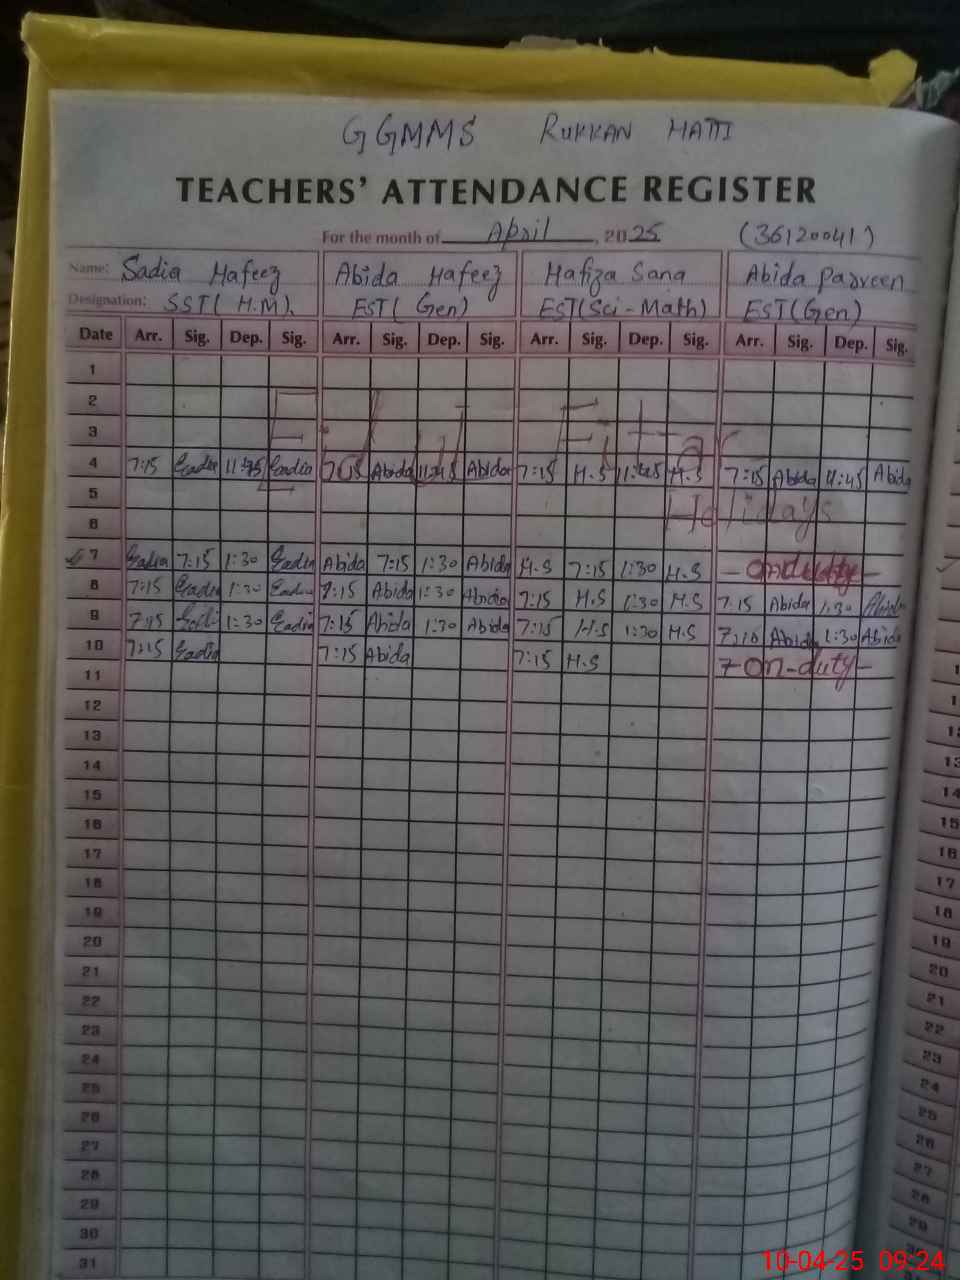 GGMMS RUKKAN HATTI
TEACHERS' ATTENDANCE REGISTER
For the month of April, 2025 (36120041)
Name: Sadia Hafeez Abida Hafeez Hafiza Sana Abida Parveen
Designation: SST(H.M). EST(Gen) EST(Sci-Math) EST(Gen)
Date Arr. Sig. Dep. Sig. Arr. Sig. Dep. Sig. Arr. Sig. Dep. Sig. Arr. Sig. Dep. Sig.
1
2
3
Eid ul Fitar
4 7:15 Sadia 11:45 Sadia Abida 11:45 Abida 7:15 H.S 11:45 H.S 7:15 Abida 11:45 Abida
5
Holidays
6
7 Sadia 7:15 1:30 Sadia Abida 7:15 1:30 Abida H.S 7:15 1:30 H.S - onduty -
8 7:15 Sadia 1:30 Sadia 7:15 Abida 1:30 Abida 7:15 H.S 1:30 H.S 7:15 Abida 1:30 Abida
9 7:15 Sadia 1:30 Sadia 7:15 Abida 1:30 Abida 7:15 H.S 1:30 H.S Abida 1:30 Abida
10 7:15 Sadia 7:15 Abida 7:15 H.S On-duty -
11
12
13
14
15
16
17
18
19
20
21
22
23
24
25
26
27
28
29
30
31
10-04-25 09:24